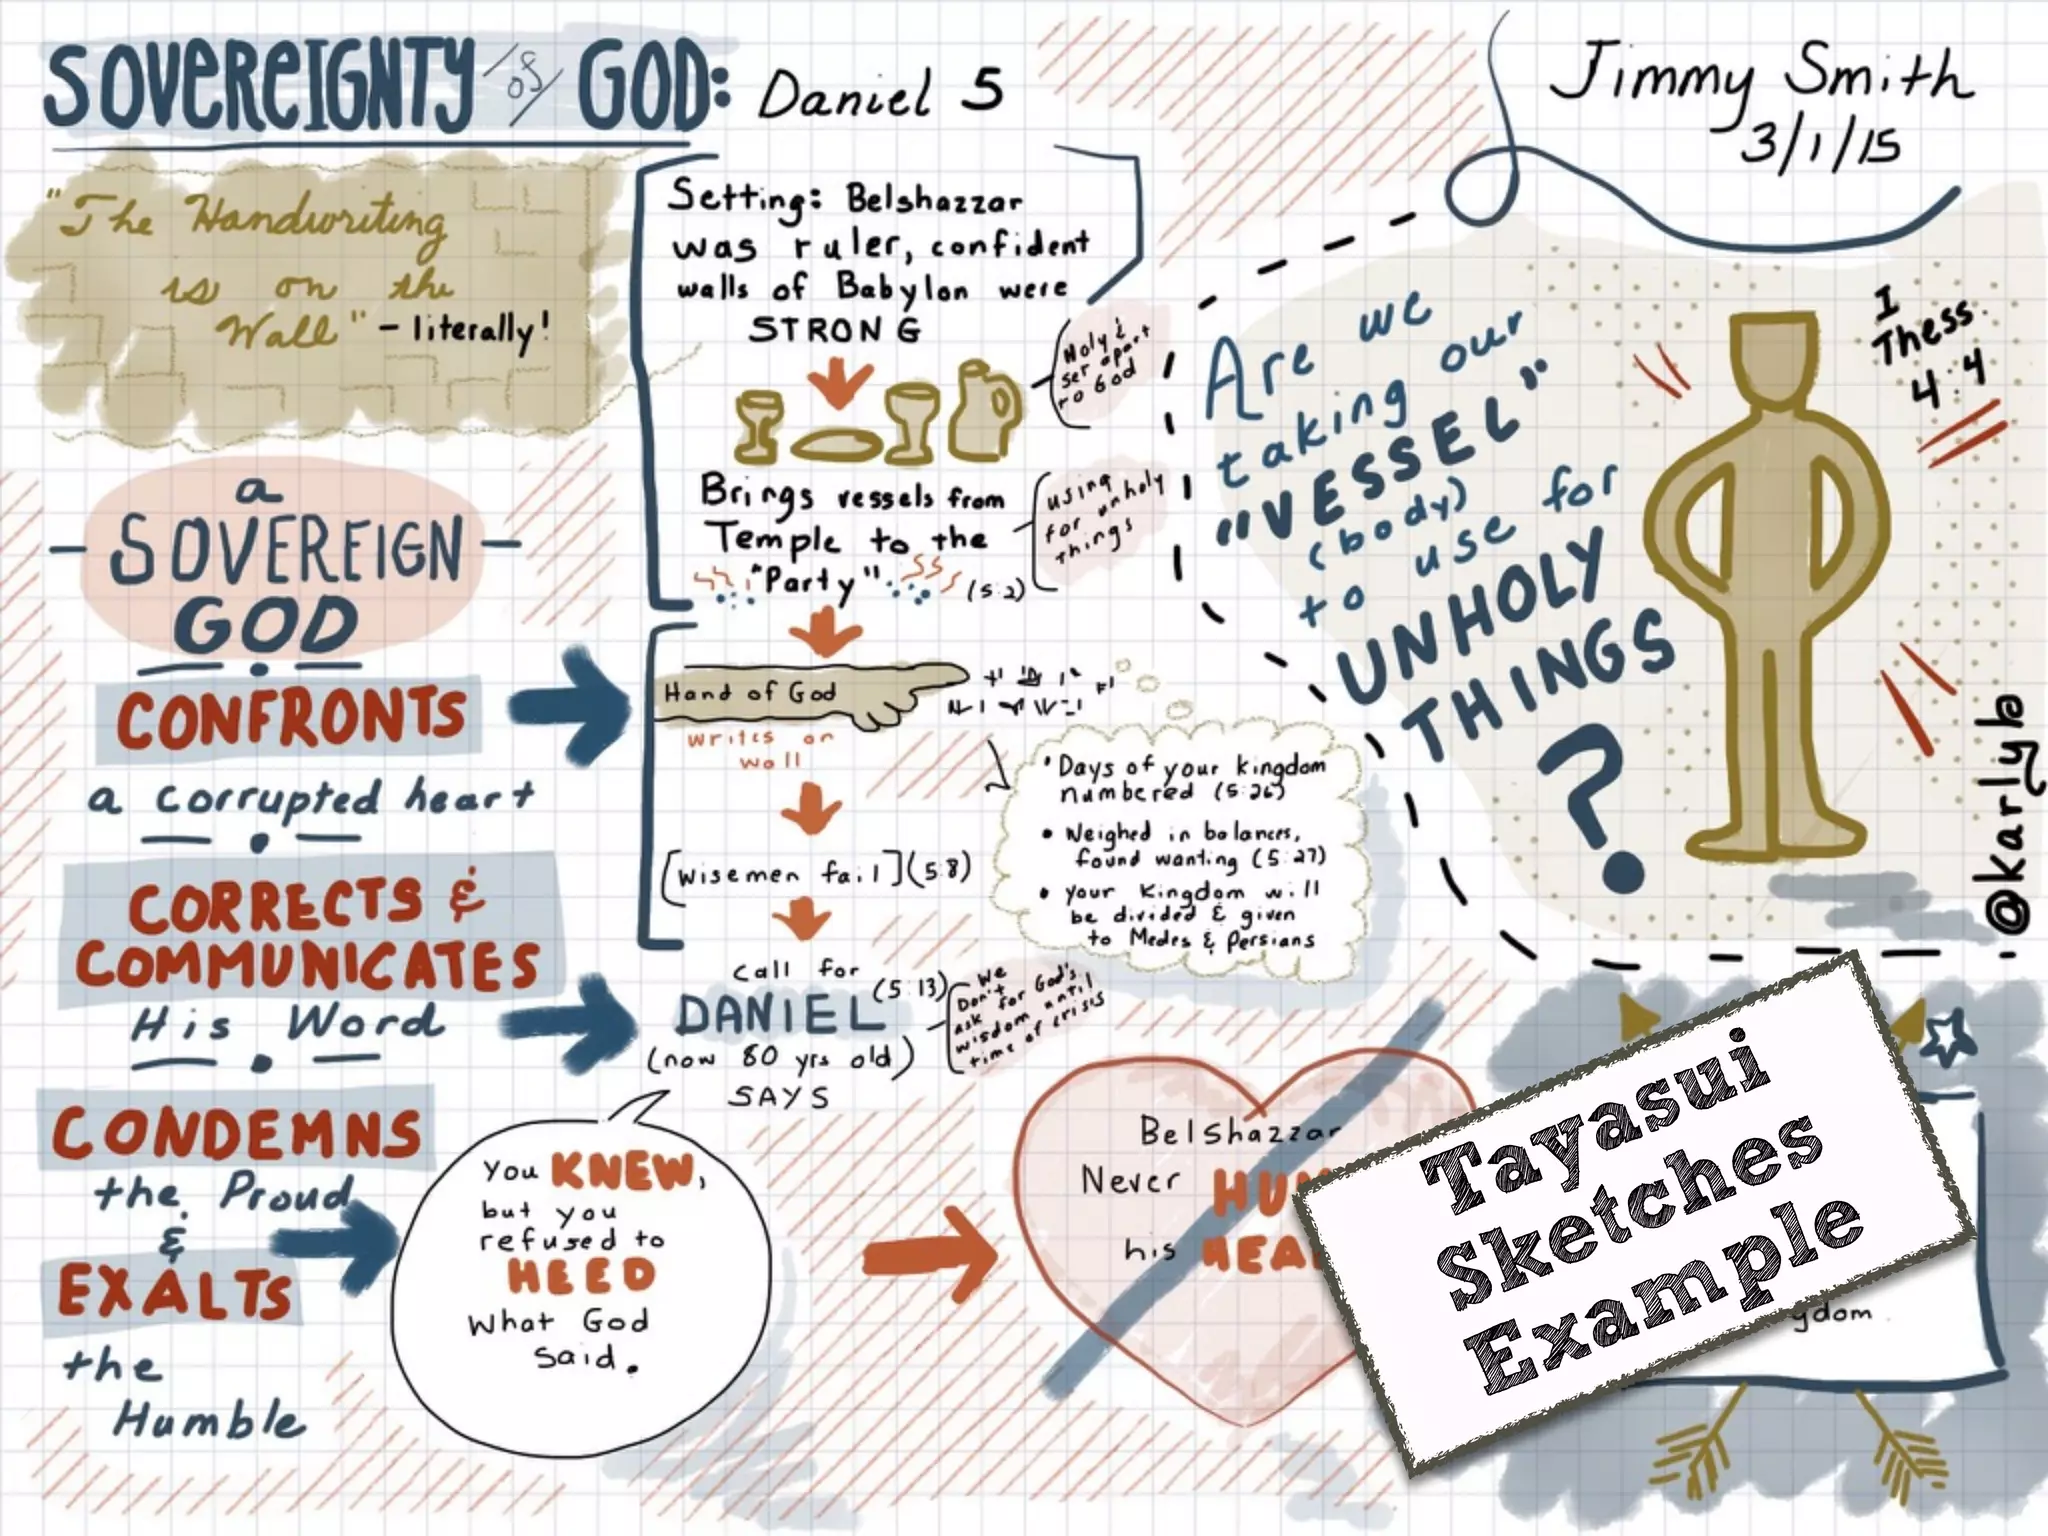 SOVEREIGNTY of GOD: Daniel 5
Jimmy Smith
3/1/15
"The Handwriting
is on the
Wall" - literally!
a
SOVEREIGN
GOD
CONFRONTS
a corrupted heart
CORRECTS &
COMMUNICATES
His Word
CONDEMNS
the Proud
&
EXALTS
the
Humble
Setting: Belshazzar
was ruler, confident
walls of Babylon were
STRONG
Holy &
set apart
to God
Brings vessels from
Temple to the
"Party"
(5:2)
using
for unholy
things
Hand of God
writes on
wall
[Wisemen fail] (5:8)
• Days of your kingdom
numbered (5:26)
• Weighed in balances,
found wanting (5:27)
• Your Kingdom will
be divided & given
to Medes & Persians
Call for
DANIEL (5:13)
(now 80 yrs old)
SAYS
We
Don't
ask for God's
wisdom until
time of crisis
You KNEW,
but you
refused to
HEED
What God
Said.
Belshazzar
Never
his
Are we
taking our
"VESSEL"
(body)
to use for
UNHOLY
THINGS
?
I
Thess
4:4
@karlyb
Tayasui
Sketches
Example